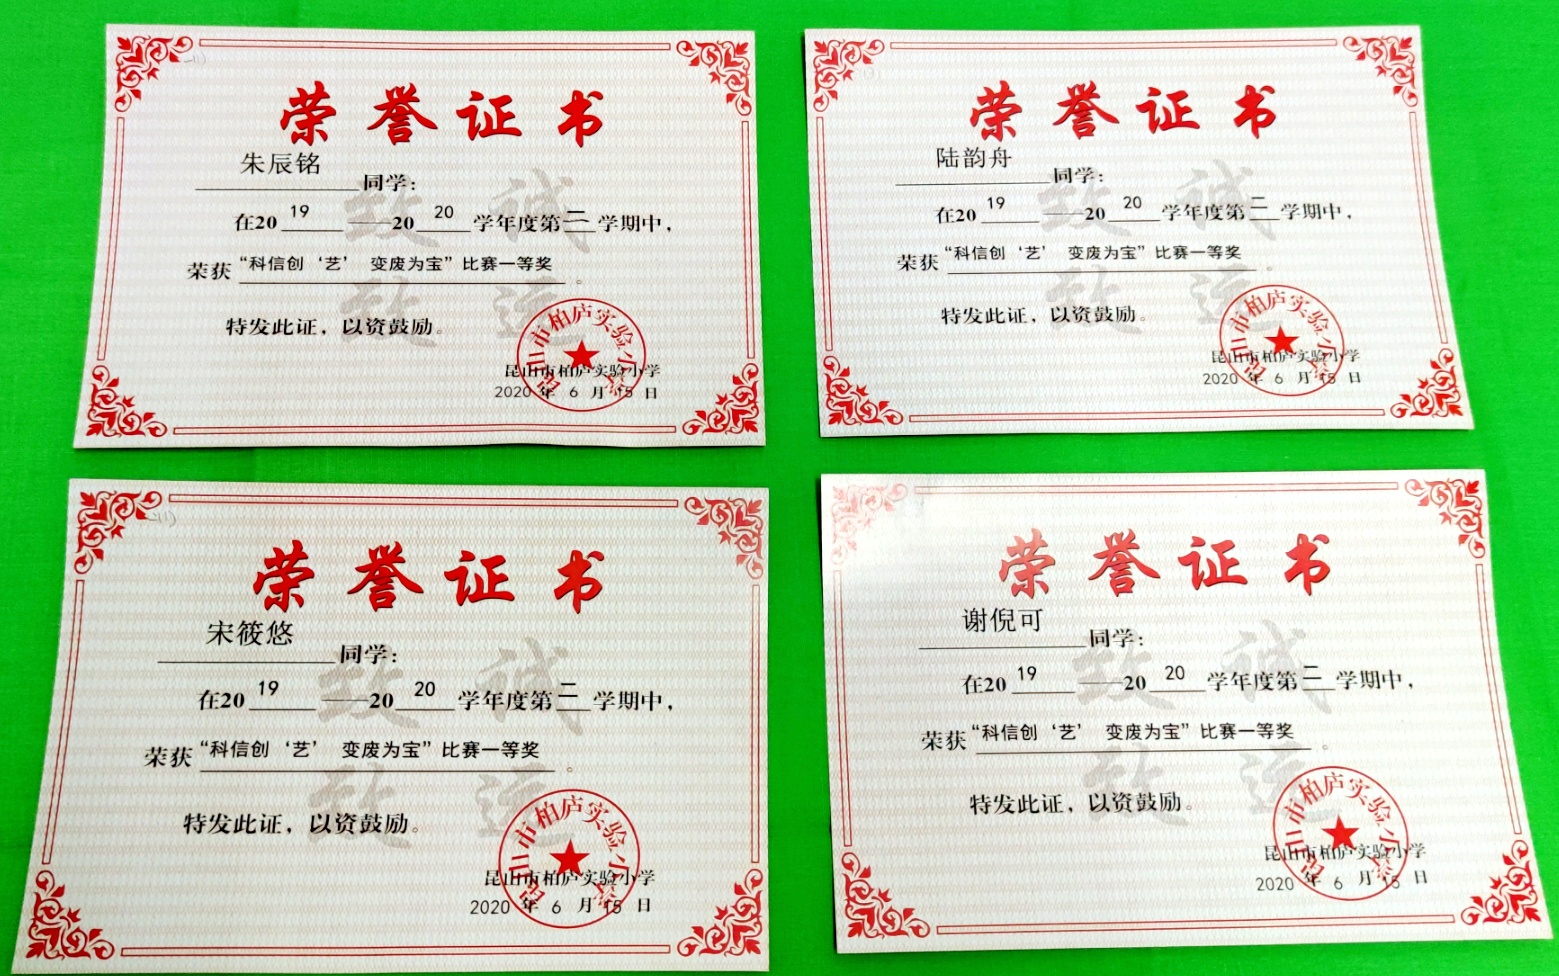 荣誉证书
朱辰铭同学：
在2019——2020学年度第二学期中，
荣获“科信创‘艺’ 变废为宝”比赛一等奖。
特发此证，以资鼓励。
昆山市柏庐实验小学
2020年6月15日
昆山市柏庐实验小学
致诚
致远
荣誉证书
陆韵舟同学：
在2019——2020学年度第二学期中，
荣获“科信创‘艺’ 变废为宝”比赛一等奖。
特发此证，以资鼓励。
昆山市柏庐实验小学
2020年6月15日
昆山市柏庐实验小学
致诚
致远
荣誉证书
宋筱悠同学：
在2019——2020学年度第二学期中，
荣获“科信创‘艺’ 变废为宝”比赛一等奖。
特发此证，以资鼓励。
昆山市柏庐实验小学
2020年6月15日
昆山市柏庐实验小学
致诚
致远
荣誉证书
谢倪可同学：
在2019——2020学年度第二学期中，
荣获“科信创‘艺’ 变废为宝”比赛一等奖。
特发此证，以资鼓励。
昆山市柏庐实验小学
2020年6月15日
昆山市柏庐实验小学
致诚
致远